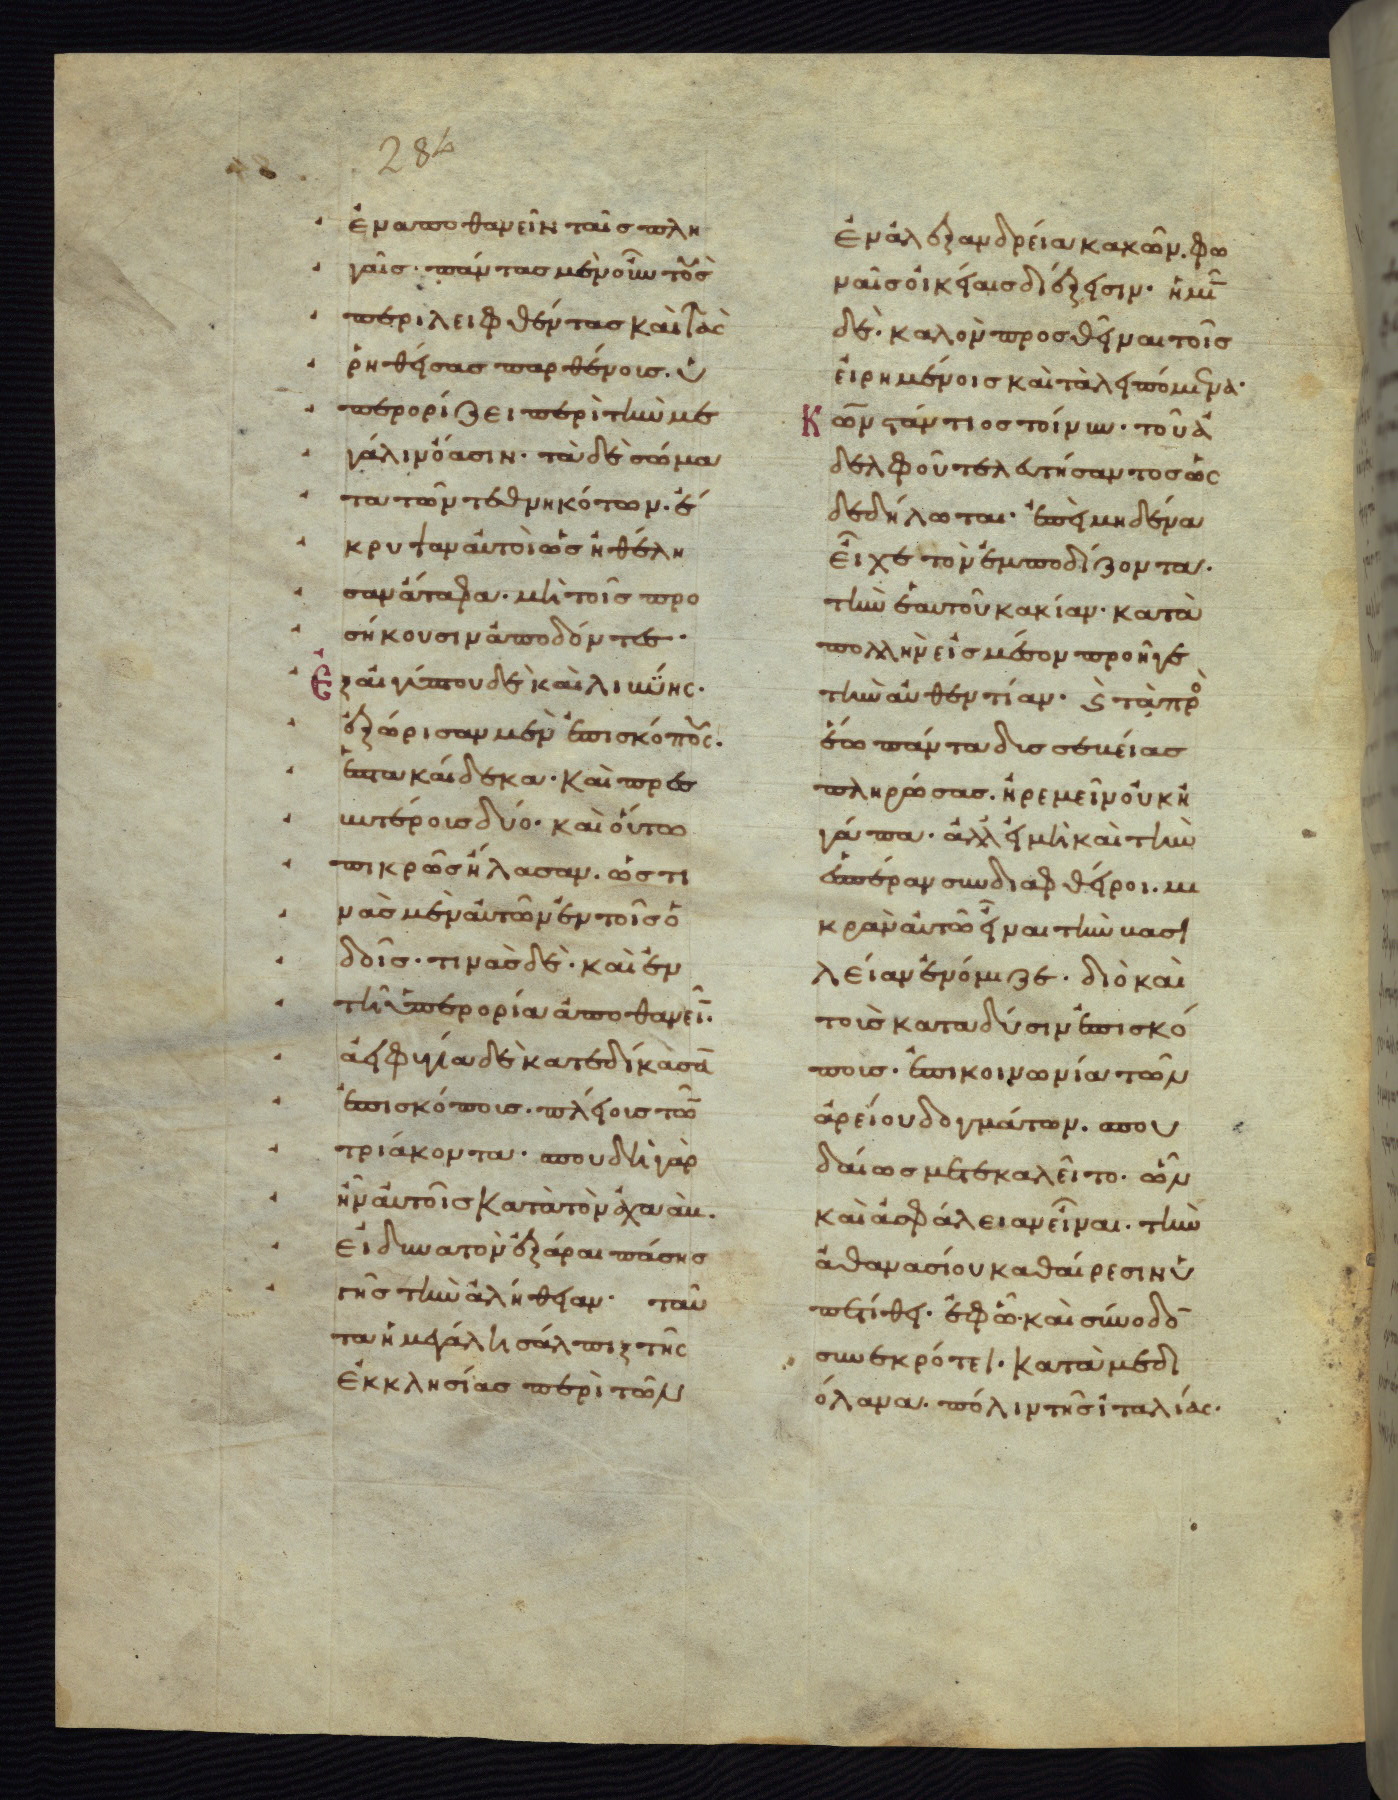 284
ἐναποθανεῖν ταῖς πλη
γαῖς· πάντας μὲν οὖν τοὺς
περιλειφθέντας καὶ τὰς
ῥηθείσας παρθένους. ὑ
περορίζει περὶ τὴν με
γάλην ὄασιν· τὰ δὲ σώμα
τα τῶν τεθνηκότων. ἔ
κρυψαν αὐτοὶ ὡς ἠθέλη
σαν ἄταφα· μὴ τοῖς προ
σήκουσιν ἀποδόντες·
ἐξ αἰγύπτου δὲ καὶ λιβύης·
ἐξώρισαν μὲν ἐπισκόπους·
ἑπτακαίδεκα· καὶ πρεσ
βυτέρους δύο· καὶ οὕτω
πικρῶς ἤλασαν. ὥς τι
νὰς μὲν αὐτῶν ἐν τοῖς ὁ
δοῖς· τινὰς δὲ· καὶ ἐν
τῆ ὑπερορία ἀποθανεῖν·
ἀειφυγία δὲ κατεδίκασαν
ἐπισκόπους· πλείους τῶν
τριάκοντα· σπουδὴ γὰρ
ἦν αὐτοῖς κατὰ τὸν ἀχαὰβ·
εἰ δυνατὸν ἐξάραι πάσης
γῆς τὴν ἀλήθειαν· ταῦ
τα ἡ μεγάλη σάλπιξ τῆς
ἐκκλησίας περὶ τῶν
ἐν ἀλεξανδρεία κακῶν. φω
ναῖς οἰκείαις διέξεισιν· ἡμῖν
δὲ· καλὸν προσθεῖναι τοῖς
εἰρημένοις καὶ τὰ λειπόμενα·
Κωνστάντιος τοίνυν· τοῦ ἀ
δελφοῦ τελευτήσαντος ὡς
δεδήλωται· ἐπεὶ μηδένα
εἶχε τὸν ἐμποδίζοντα·
τὴν ἑαυτοῦ κακίαν· κατὰ
πολλὴν εἰς μέσον προῆγε
τὴν αὐθεντίαν· καὶ τὰ πρὸς
ἕω πάντα δυσσεβείας
πληρώσας. ἠρεμεῖν οὐκ ἠ
γάπα· ἀλλ' εἰ μὴ καὶ τὴν
ἑσπέραν συνδιαφθείροι. μι
κρὰν αὐτῶ εἶναι τὴν βασι
λείαν ἐνόμιζε· διὸ καὶ
τοὺς κατὰ δύσιν ἐπισκό
πους· ἐπὶ κοινωνία τῶν
ἀρείου δογμάτων. σπου
δαίως μετεκαλεῖτο· ὧν
καὶ ἀσφάλειαν εἶναι· τὴν
ἀθανασίου καθαίρεσιν ὑ
πετίθει· ἐφ' ᾧ· καὶ σύνοδον
συνεκρότει· κατὰ μεδι
όλανα· πόλιν τῆς ἰταλίας·